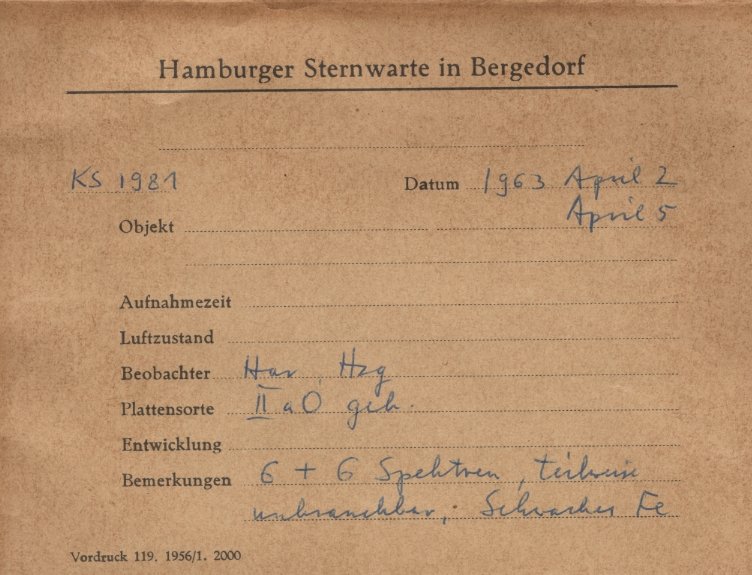 Hamburger Sternwarte in Bergedorf
KS 1981 Datum 1963 April 2
April 5
Objekt
Aufnahmezeit
Luftzustand
Beobachter Har, Hzg
Plattensorte II a O geh.
Entwicklung
Bemerkungen 6 + 6 Spektren, teilweise
unbrauchbar, Schwaches Fe
Vordruck 119. 1956/1. 2000